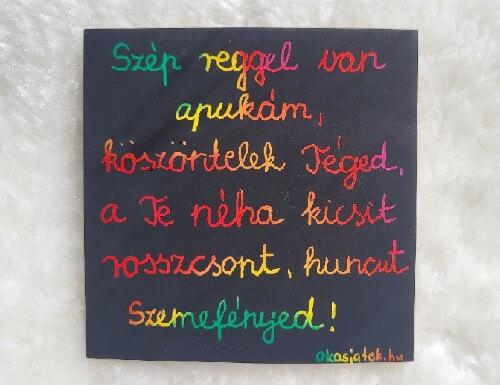 Szép reggel van
apukám,
köszöntelek Téged,
a Te néha kicsit
rosszcsont, huncut
Szemefényed!
okosjatek.hu